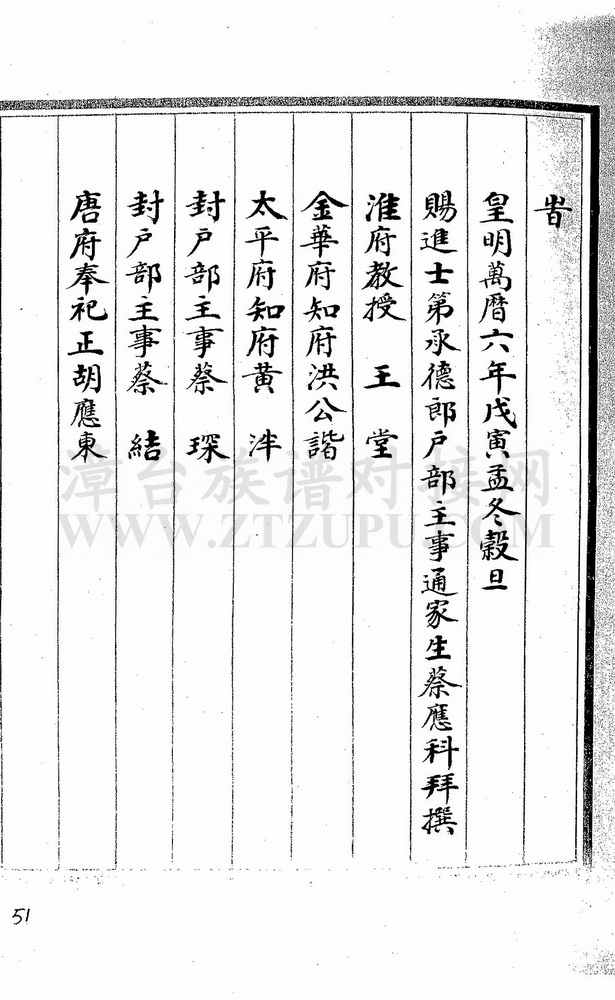 旹
皇明萬曆六年戊寅孟冬穀旦
賜進士第承德郎戶部主事通家生蔡應科拜撰
淮府教授 王 堂
金華府知府洪公諧
太平府知府黃 泮
封戶部主事蔡 琛
封戶部主事蔡 結
唐府奉祀正胡應東
漳台族谱对接网
WWW.ZTZUPU.COM
51